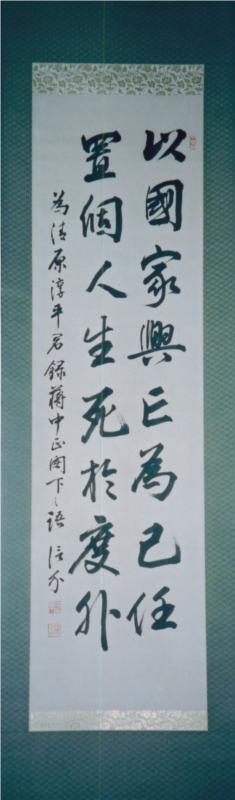 以國家興亡為己任
置個人生死於度外
為清原淳平君錄蔣中正閣下之語 信介